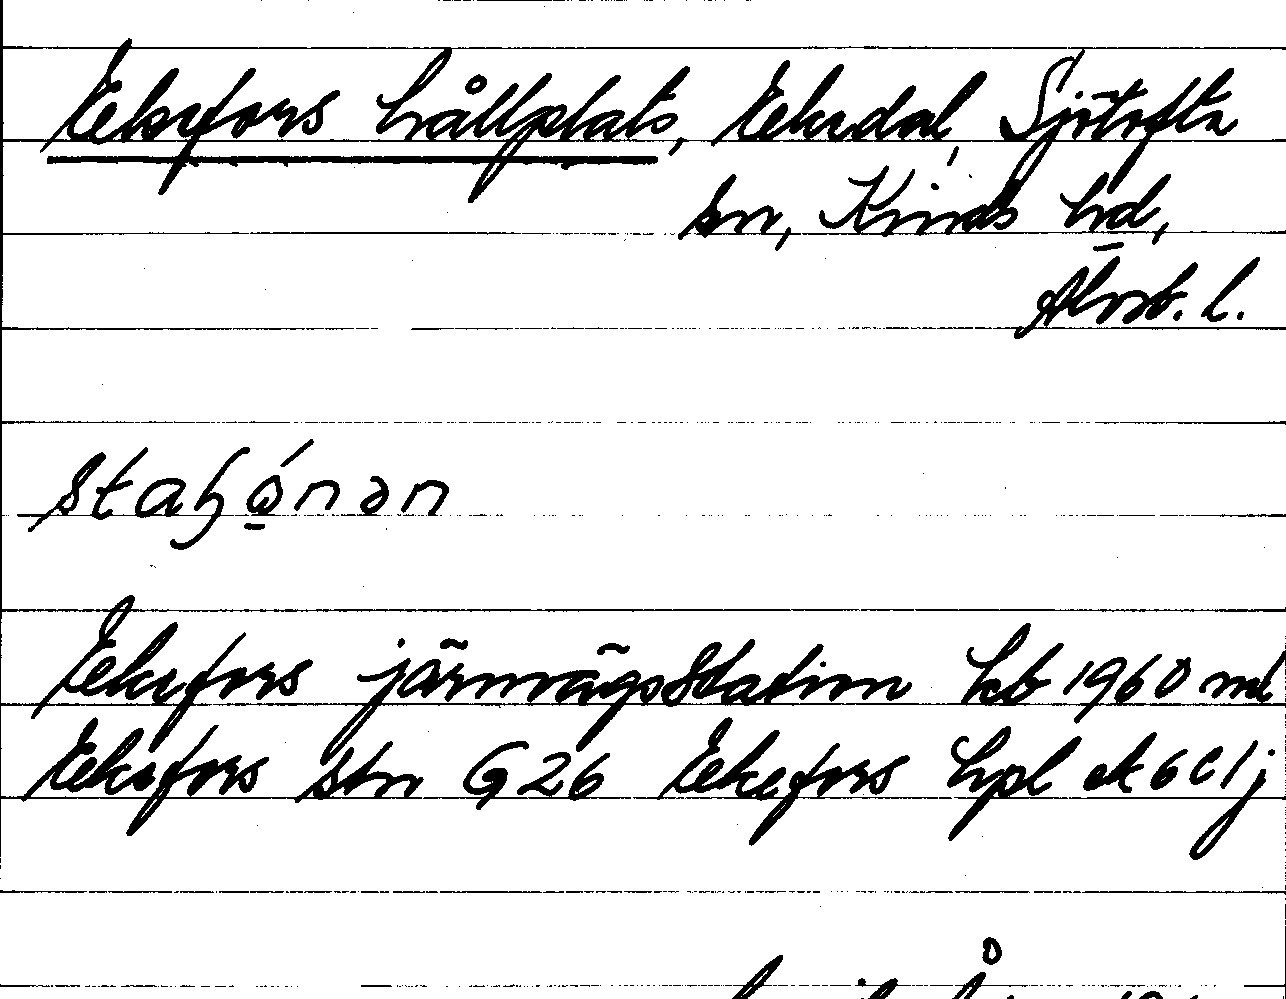 Ekefors hållplats, Ekedal, Sjötofta
sn, Kinds hd,
Älvsb. l.
Ekefors järnvägsstation hb 1960 ml
Ekefors stn G26 Ekefors hpl ek 6c1j